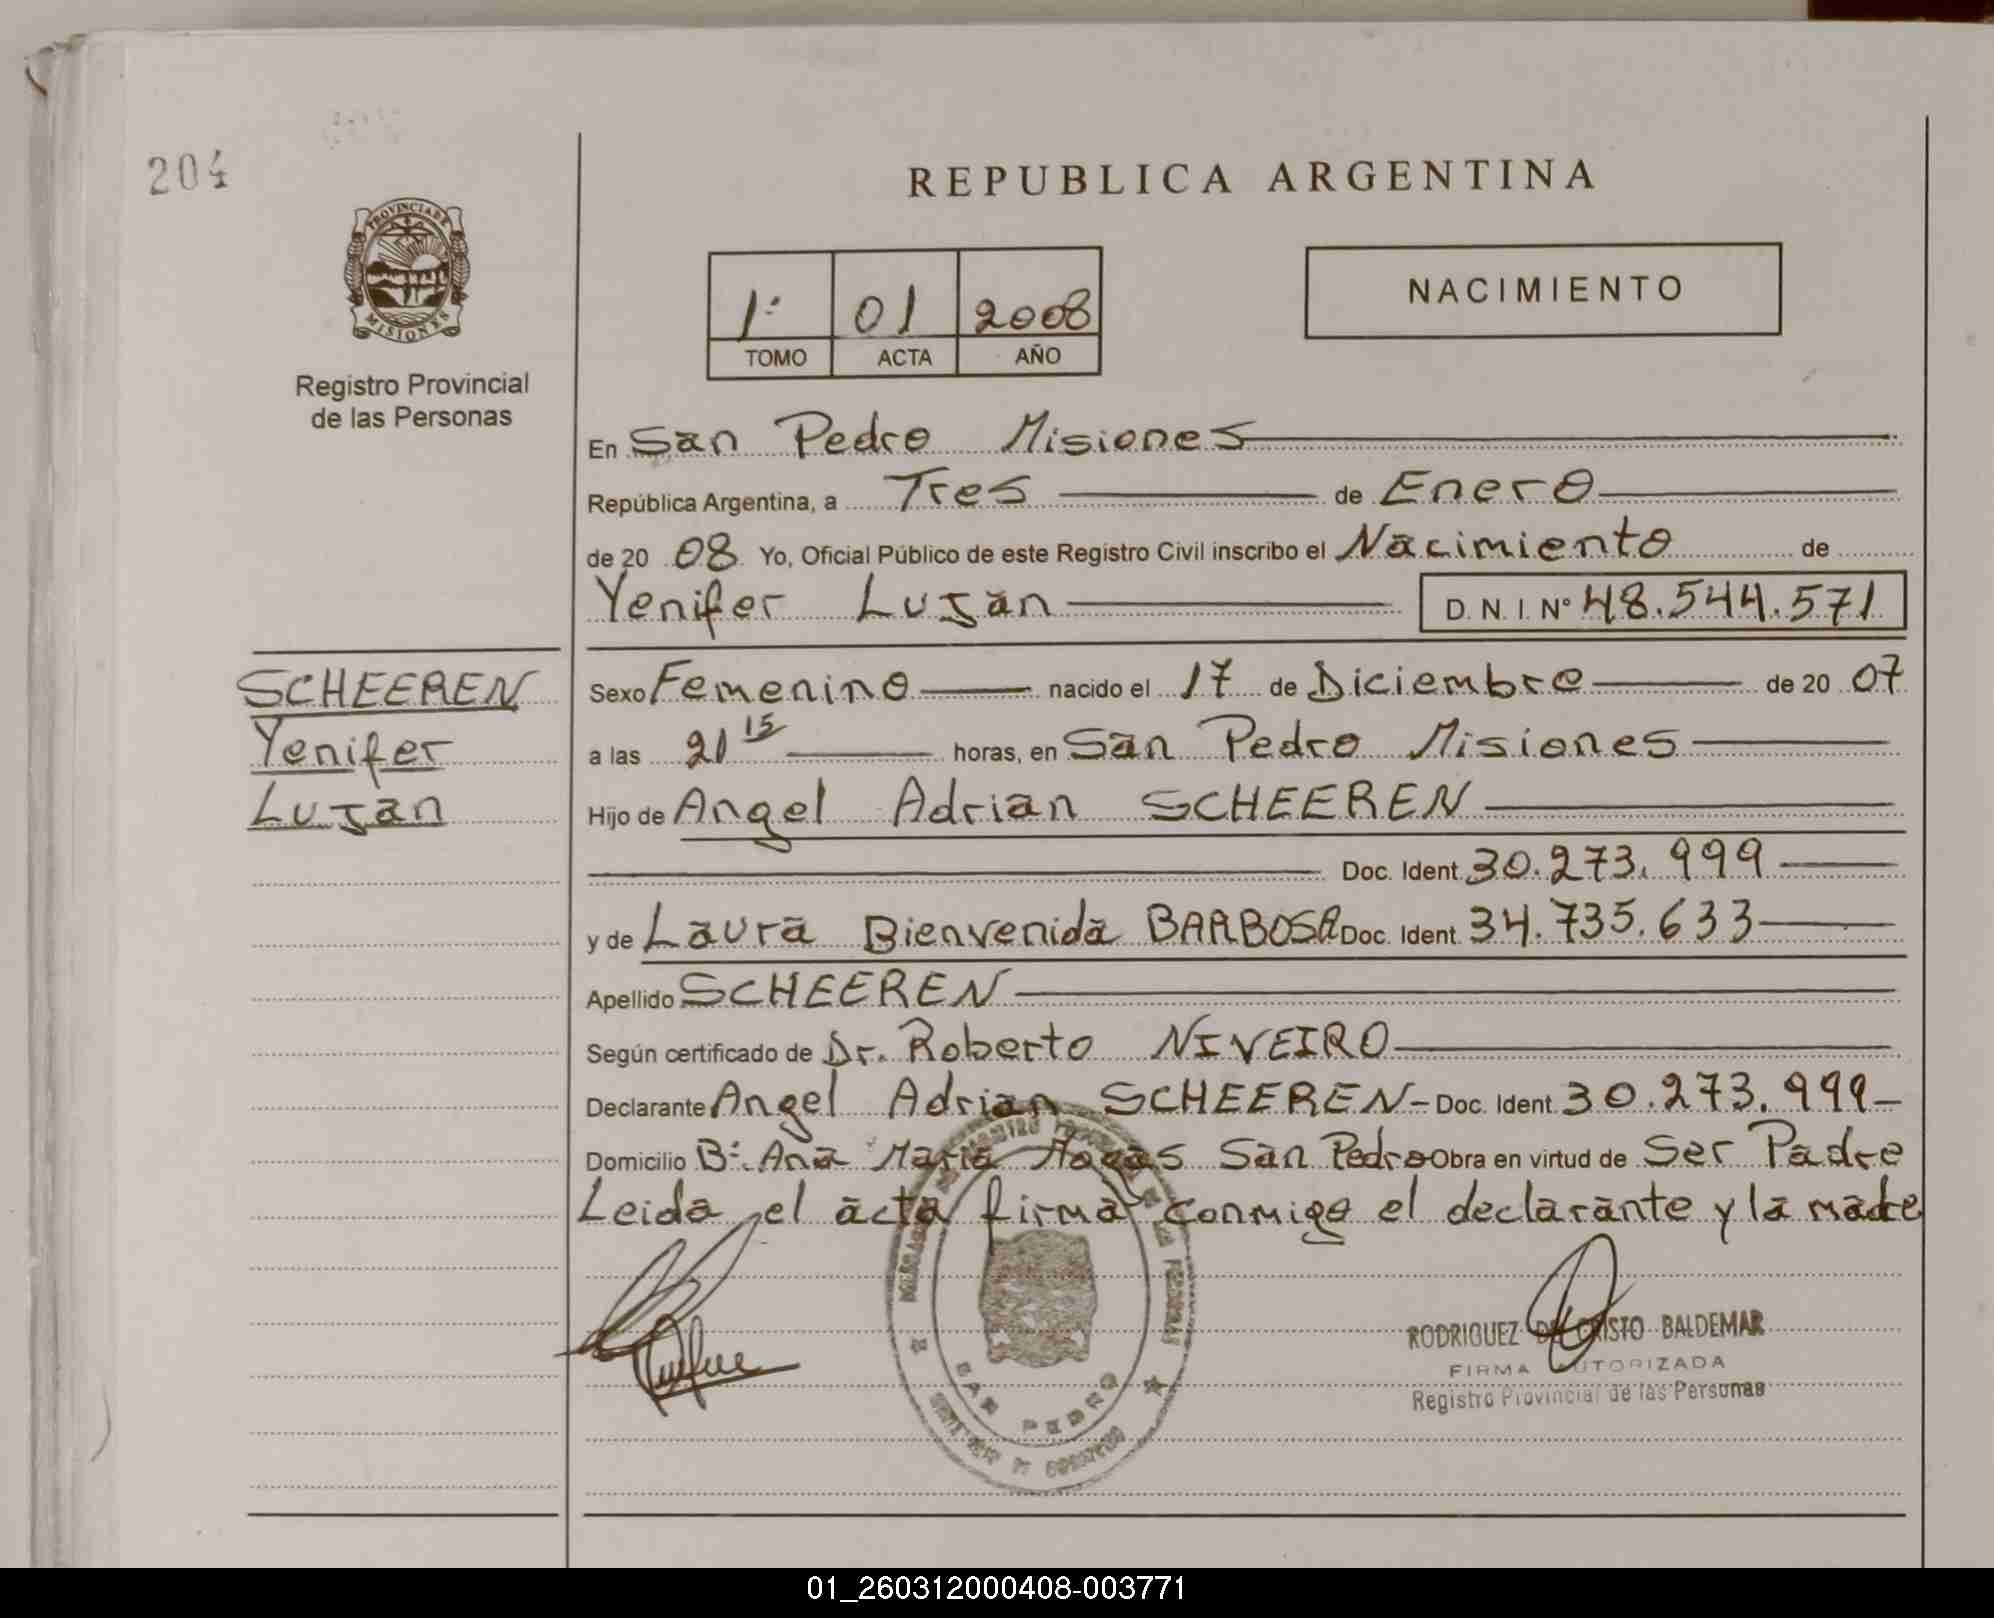 204
PROVINCIA DE
MISIONES
Registro Provincial
de las Personas
REPUBLICA ARGENTINA
1º 01 2008
TOMO ACTA AÑO
NACIMIENTO
En San Pedro Misiones
República Argentina, a Tres de Enero
de 20 08 Yo, Oficial Público de este Registro Civil inscribo el Nacimiento de
Yenifer Luján D. N. I. Nº 48.544.571
SCHEEREN
Yenifer
Luján
Sexo Femenino nacido el 17 de Diciembre de 20 07
a las 21 15 horas, en San Pedro Misiones
Hijo de Angel Adrian SCHEEREN
Doc. Ident. 30.273.999
y de Laura Bienvenida BARBOSA Doc. Ident. 34.735.633
Apellido SCHEEREN
Según certificado de Dr. Roberto NIVEIRO
Declarante Angel Adrian SCHEEREN - Doc. Ident. 30.273.999 -
Domicilio Bº. Ana Maria Mogas San Pedro Obra en virtud de Ser Padre
Leida el acta firma conmigo el declarante y la madre
SAN PEDRO
RODRIGUEZ DE CRISTO BALDEMAR
FIRMA AUTORIZADA
Registro Provincial de las Personas
01_260312000408-003771